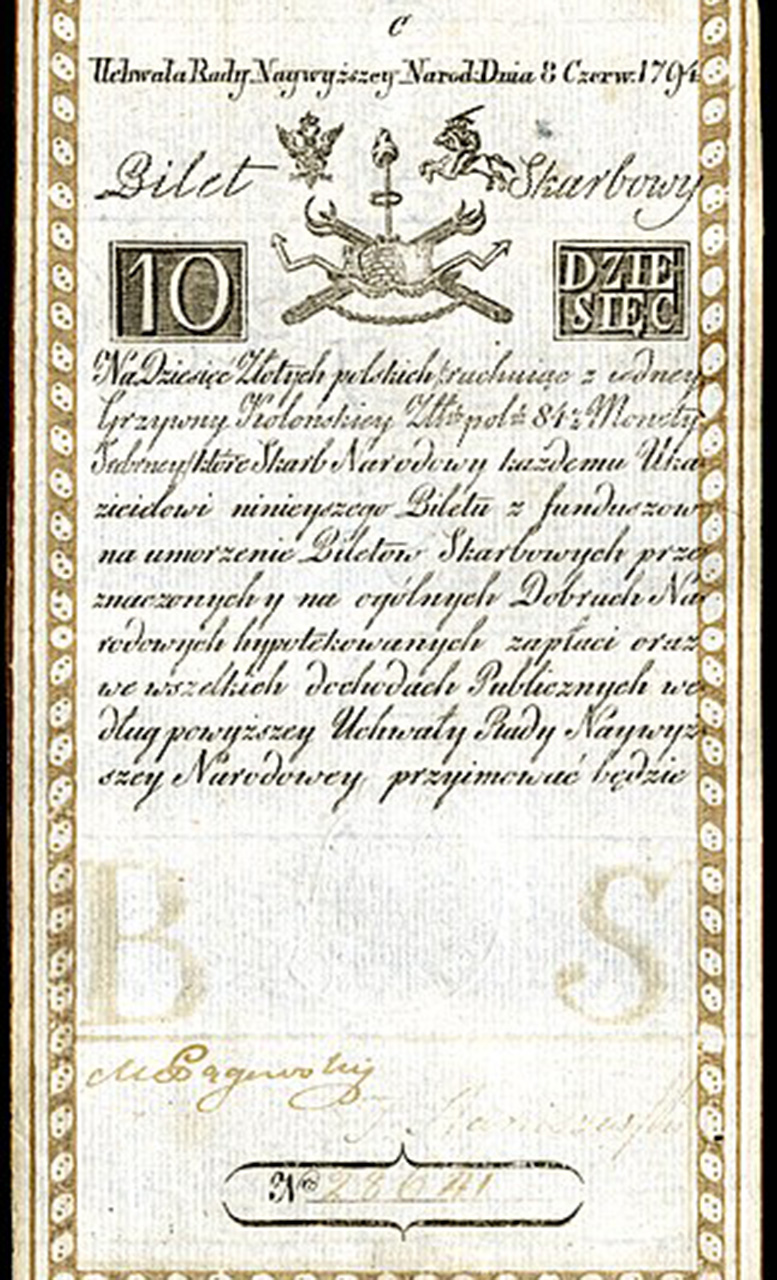 C
Uchwała Rady Naywyższey Narod: Dnia 8 Czerw. 1794
Bilet Skarbowy
10 DZIE
SIĘC
Na Dziesięć Złotych polskich rachuiąc z iedney
Grzywny Kolonskiey Złł: pol: 84½ Monety
Srebrney, które Skarb Narodowy każdemu Uka
zicielowi ninieyszego Biletu z funduszow
na umorzenie Biletów Skarbowych prze
znaczonych y na ogólnych Dobrach Na
rodowych hypotekowanych zapłaci oraz
we wszelkich dochodach Publicznych we
dług powyższey Uchwały Rady Naywyż
szey Narodowey przyimować będzie
B S
M Pągowski
No